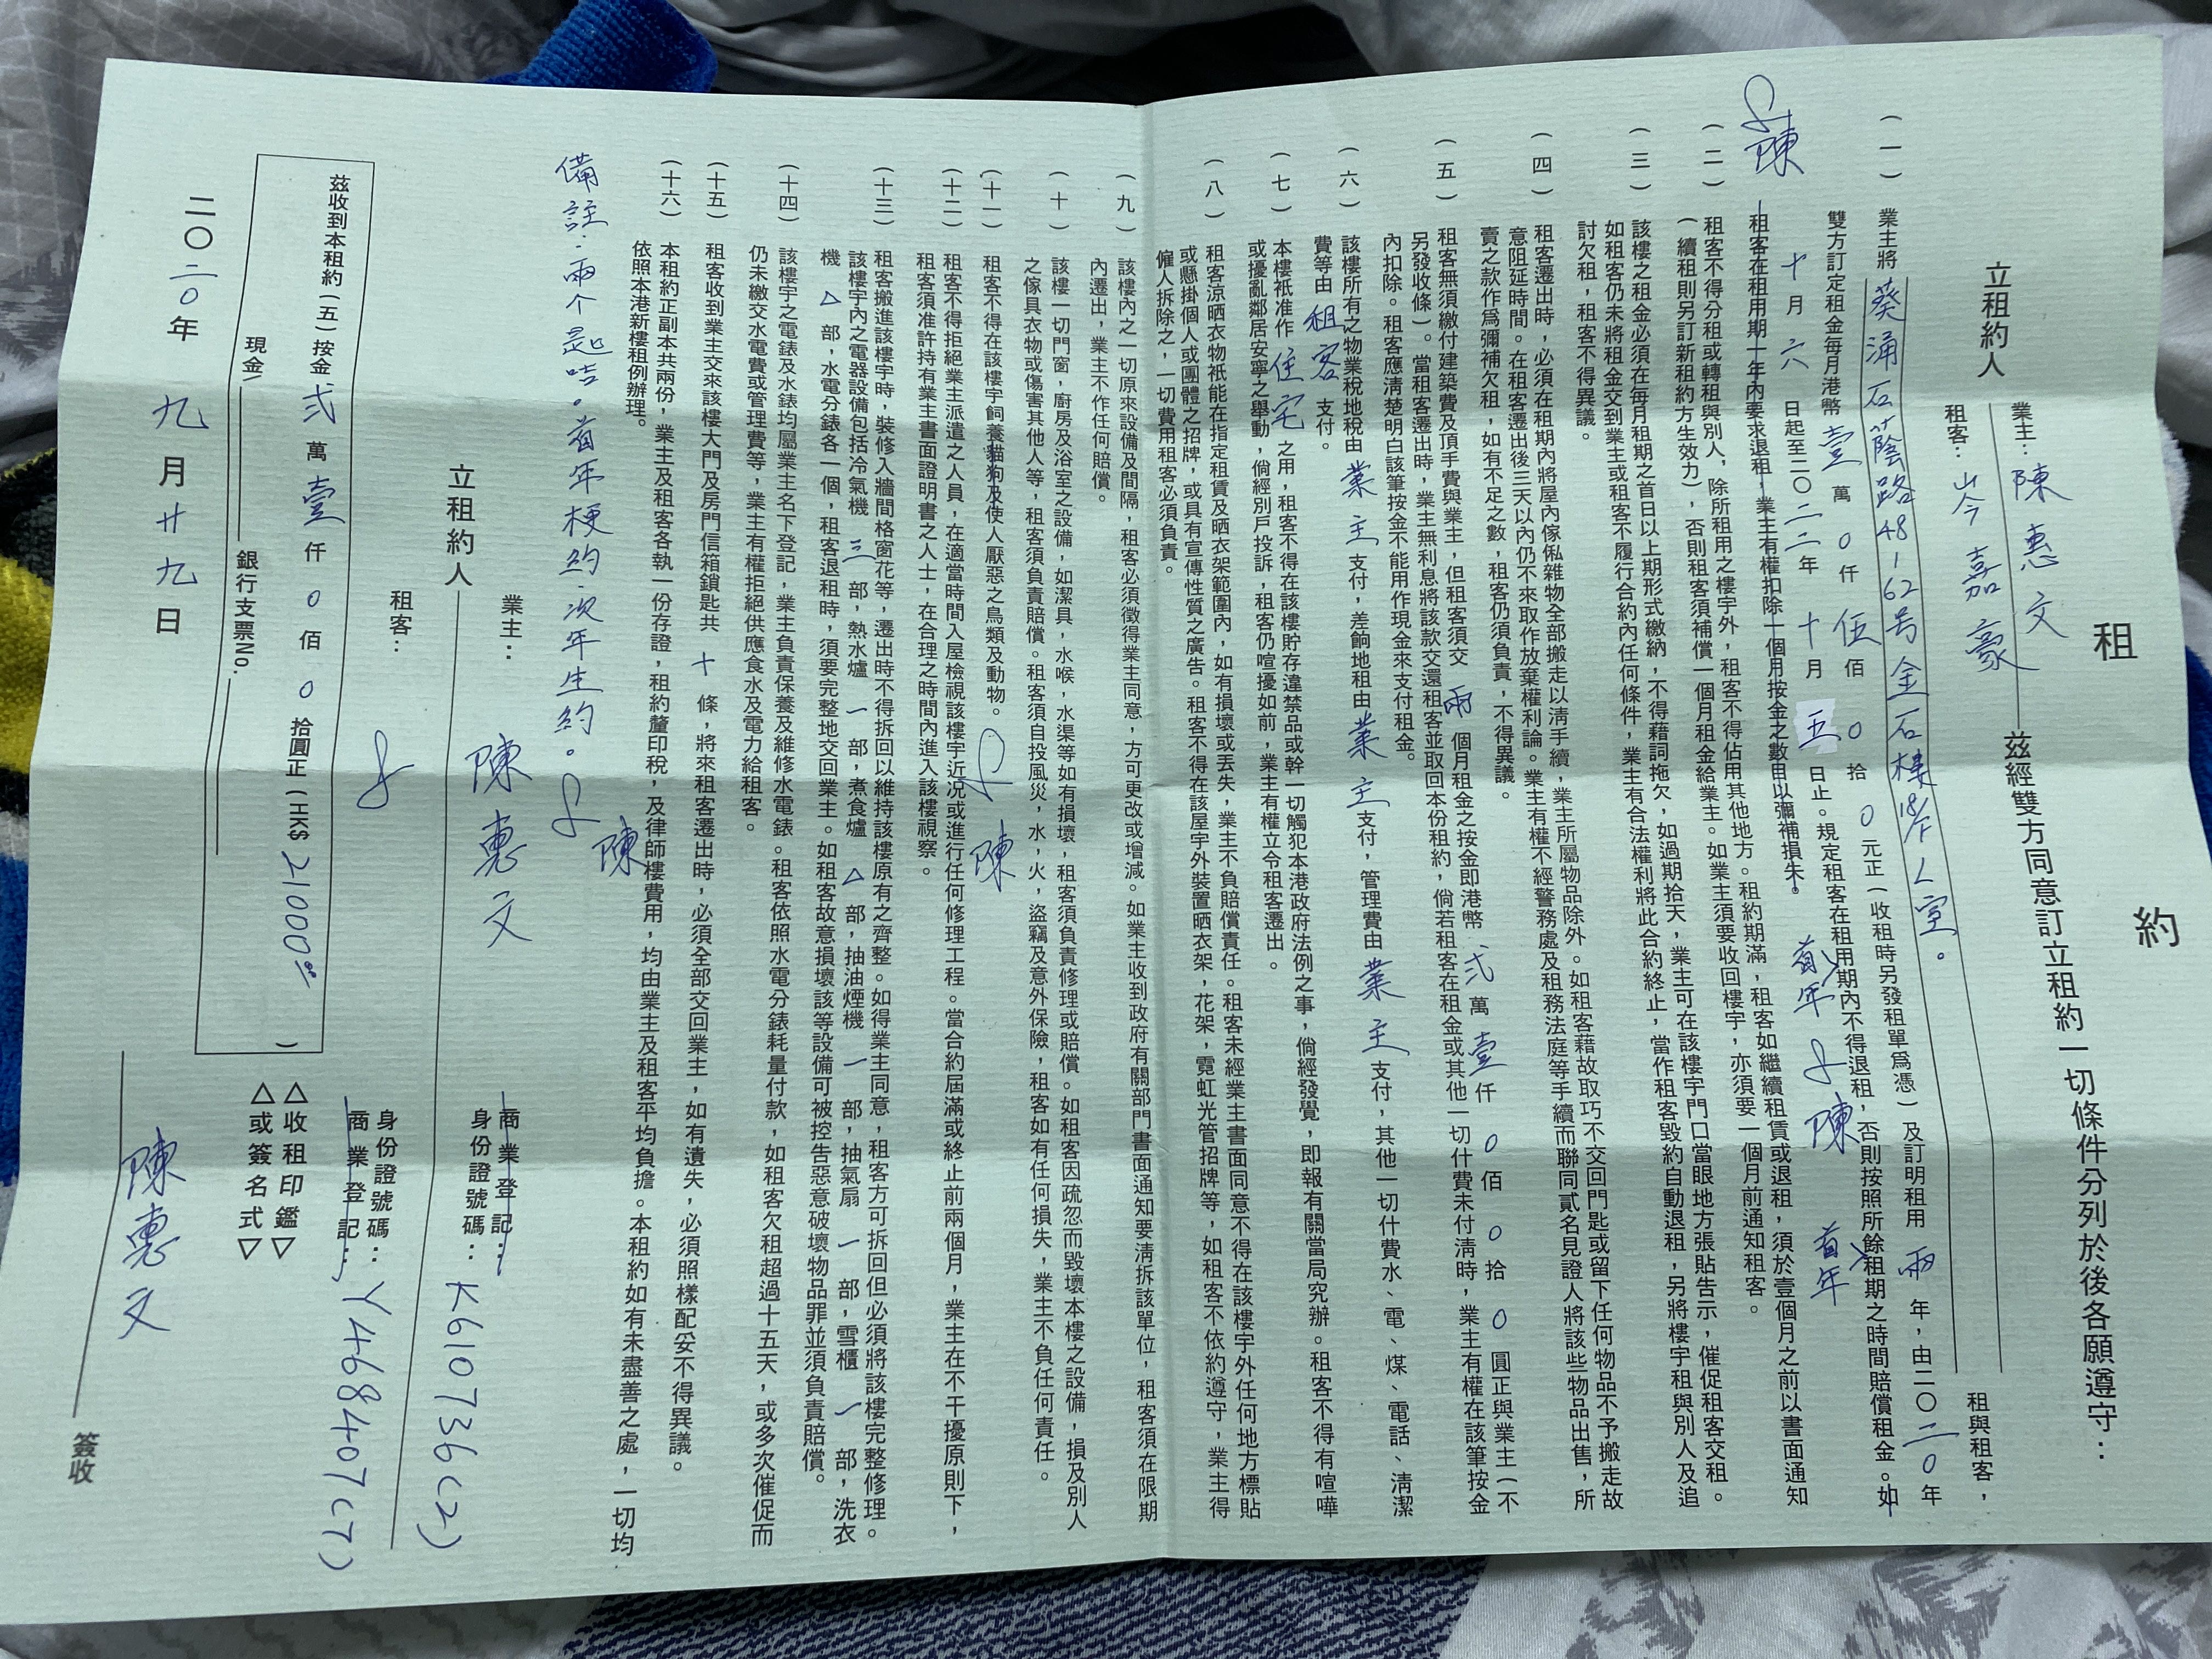 租約
立租約人 業主：陳惠文 租客：岑嘉豪 茲經雙方同意訂立租約一切條件分列於後各願遵守：
（一）業主將葵涌石蔭路48-62号金石樓18/F L室。租與租客，
雙方訂定租金每月港幣壹萬0仟伍佰0拾0元正（收租時另發租單爲憑）及訂明租用兩年，由二〇二0年
十月六日起至二〇二二年十月五日止。規定租客在租用期內不得退租，否則按照所餘租期之時間賠償租金。如
首年 陳 首年
租客在租用期一年內要求退租，業主有權扣除一個月按金之數目以彌補損失。
陳
（二）租客不得分租或轉租與別人，除所租用之樓宇外，租客不得佔用其他地方。租約期滿，租客如繼續租賃或退租，須於壹個月之前以書面通知
（續租則另訂新租約方生效力），否則租客須補償一個月租金給業主。如業主須要收回樓宇，亦須要一個月前通知租客。
（三）該樓之租金必須在每月租期之首日以上期形式繳納，不得藉詞拖欠，如過期拾天，業主可在該樓宇門口當眼地方張貼告示，催促租客交租。
如租客仍未將租金交到業主或租客不履行合約內任何條件，業主有合法權利將此合約終止，當作租客毀約自動退租，另將樓宇租與別人及追
討欠租，租客不得異議。
（四）租客遷出時，必須在租期內將屋內傢俬雜物全部搬走以清手續，業主所屬物品除外。如租客藉故取巧不交回門匙或留下任何物品不予搬走故
意阻延時間。在租客遷出後三天以內仍不來取作放棄權利論。業主有權不經警務處及租務法庭等手續而聯同貳名見證人將該些物品出售，所
賣之款作爲彌補欠租，如有不足之數，租客仍須負責，不得異議。
（五）租客無須繳付建築費及頂手費與業主，但租客須交兩個月租金之按金即港幣弍萬壹仟0佰0拾0圓正與業主（不
另發收條）。當租客遷出時，業主無利息將該款交還租客並取回本份租約，倘若租客在租金或其他一切什費未付清時，業主有權在該筆按金
內扣除。租客應清楚明白該筆按金不能用作現金來支付租金。
（六）該樓所有之物業稅地稅由業主支付，差餉地租由業主支付，管理費由業主支付，其他一切什費水、電、煤、電話、清潔
費等由租客支付。
（七）本樓衹准作住宅之用，租客不得在該樓貯存違禁品或幹一切觸犯本港政府法例之事，倘經發覺，即報有關當局究辦。租客不得有喧嘩
或擾亂鄰居安寧之舉動，倘經別戶投訴，租客仍喧擾如前，業主有權立令租客遷出。
（八）租客涼晒衣物衹能在指定租賃及晒衣架範圍內，如有損壞或丟失，業主不負賠償責任。租客未經業主書面同意不得在該樓宇外任何地方標貼
或懸掛個人或團體之招牌，或具有宣傳性質之廣告。租客不得在該屋宇外裝置晒衣架，花架，霓虹光管招牌等，如租客不依約遵守，業主得
僱人拆除之，一切費用租客必須負責。
（九）該樓內之一切原來設備及間隔，租客必須徵得業主同意，方可更改或增減。如業主收到政府有關部門書面通知要清拆該單位，租客須在限期
內遷出，業主不作任何賠償。
（十）該樓一切門窗，廚房及浴室之設備，如潔具，水喉，水渠等如有損壞，租客須負責修理或賠償。如租客因疏忽而毀壞本樓之設備，損及別人
之傢具衣物或傷害其他人等，租客須負責賠償。租客須自投風災，水，火，盜竊及意外保險，租客如有任何損失，業主不負任何責任。
（十一）租客不得在該樓宇飼養貓狗及使人厭惡之鳥類及動物。 陳
（十二）租客不得拒絕業主派遣之人員，在適當時間入屋檢視該樓宇近況或進行任何修理工程。當合約屆滿或終止前兩個月，業主在不干擾原則下，
租客須准許持有業主書面證明書之人士，在合理之時間內進入該樓視察。
（十三）租客搬進該樓宇時，裝修入牆間格窗花等，遷出時不得拆回以維持該樓原有之齊整。如得業主同意，租客方可拆回但必須將該樓完整修理。
該樓宇內之電器設備包括冷氣機三部，熱水爐一部，煮食爐△部，抽油煙機一部，抽氣扇一部，雪櫃一部，洗衣
機△部，水電分錶各一個，租客退租時，須要完整地交回業主。如租客故意損壞該等設備可被控告惡意破壞物品罪並須負責賠償。
（十四）該樓宇之電錶及水錶均屬業主名下登記，業主負責保養及維修水電錶。租客依照水電分錶耗量付款，如租客欠租超過十五天，或多次催促而
仍未繳交水電費或管理費等，業主有權拒絕供應食水及電力給租客。
（十五）租客收到業主交來該樓大門及房門信箱鎖匙共十條，將來租客遷出時，必須全部交回業主，如有遺失，必須照樣配妥不得異議。
（十六）本租約正副本共兩份，業主及租客各執一份存證，租約釐印稅，及律師樓費用，均由業主及租客平均負擔。本租約如有未盡善之處，一切均
依照本港新樓租例辦理。
備註：兩个匙咭。首年梗約，次年生約。 陳
立租約人 業主：陳惠文 商業登記： 身份證號碼：K610736(2)
租客： 身份證號碼：Y468407(7) 商業登記：
茲收到本租約（五）按金弍萬壹仟0佰0拾圓正（HK$21000 ）
現金\ 銀行支票No.
△收租印鑑▽
△或簽名式▽
二〇二0年九月廿九日 陳惠文 簽收